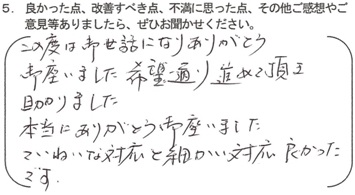 5. 良かった点、改善すべき点、不満に思った点、その他ご感想やご
意見等ありましたら、ぜひお聞かせください。
この度は御世話になりありがとう
御座いました 希望通り進めて頂き
助かりました
本当にありがとう御座いました
ていねいな対応と細かい対応良かった
です.